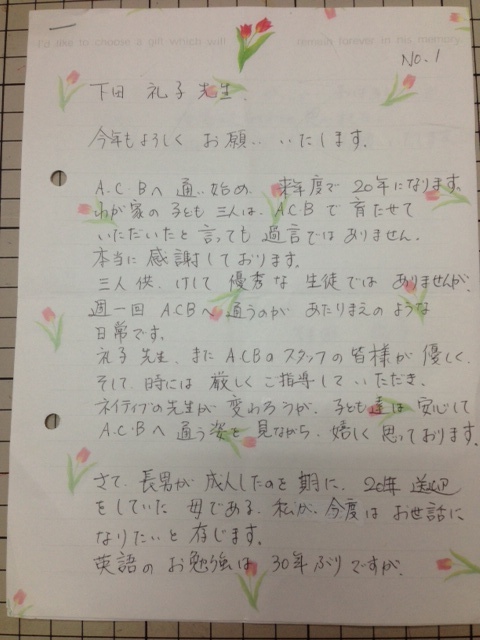 I'd like to choose a gift which will remain forever in his memory.
No.1
下田 礼子 先生.
今年もよろしく お願い いたします.
A.C.Bへ 通い始め 来年度で 20年になります.
わが家の子ども 三人は. ACB で 育たせて
いただいたと 言っても 過言ではありません.
本当に 感謝しております.
三人供. けして 優秀な 生徒では ありませんが.
週一回 ACBへ 通うのが あたりまえのような
日常です.
礼子先生. また ACBのスタッフの皆様が 優しく.
そして 時には 厳しく ご指導して いただき.
ネイティブの先生が 変わろうが. 子ども達は 安心して
A.C.Bへ 通う姿を 見ながら. 嬉しく 思っております.
さて. 長男が 成人したのを 期に. 20年 送迎
をしていた 母である. 私が. 今度は お世話に
なりたいと 存じます.
英語の お勉強は 30年ぶりですが.